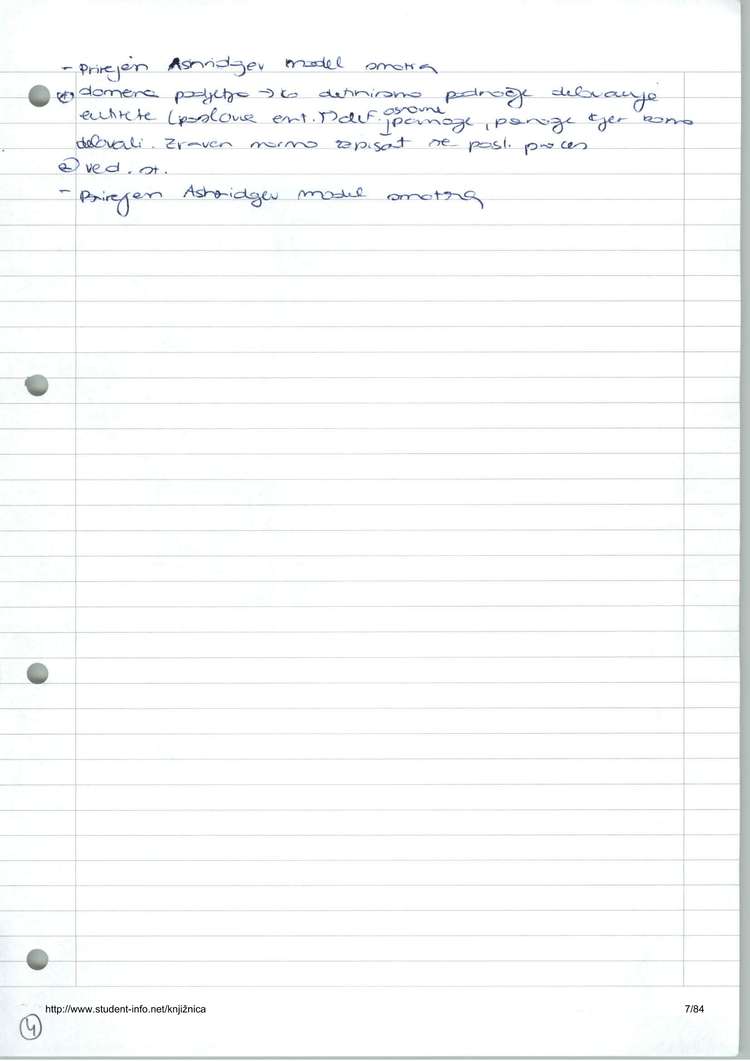 - Prirejen Ashridgev model smotra
① domena podjetja → ko definiramo področje delovanja
entitete (poslovne ent. osnovne panoge, panoge kjer bomo
delovali. Zraven moramo zapisat še posl. proces
② ved. st.
- Prirejen Ashridgev model smotra
http://www.student-info.net/knjižnica
7/84
4